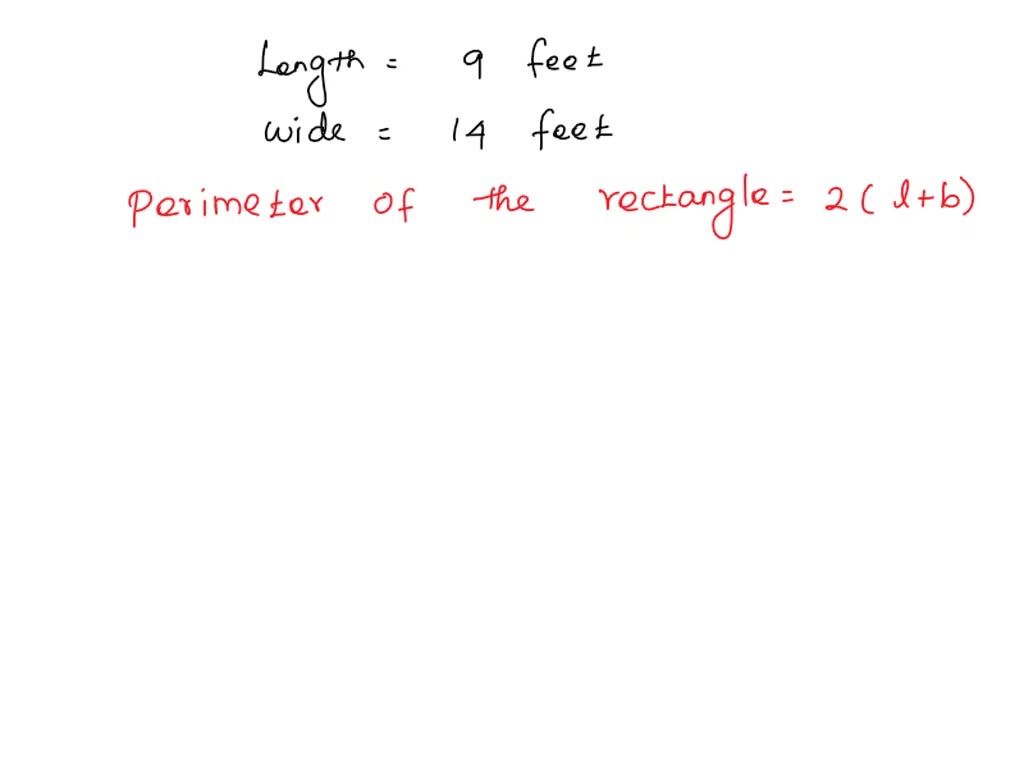 Length = 9 feet
wide = 14 feet
Perimeter of the rectangle = 2 ( l+b)